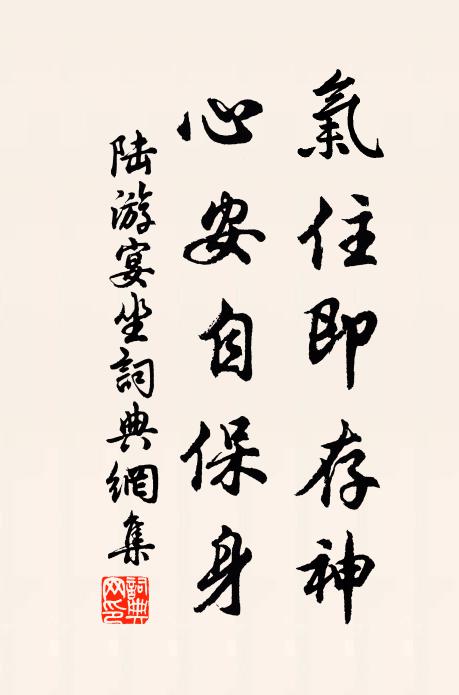 氣住即存神
心安自保身
陆游宴坐詞典網集
詞典
网印